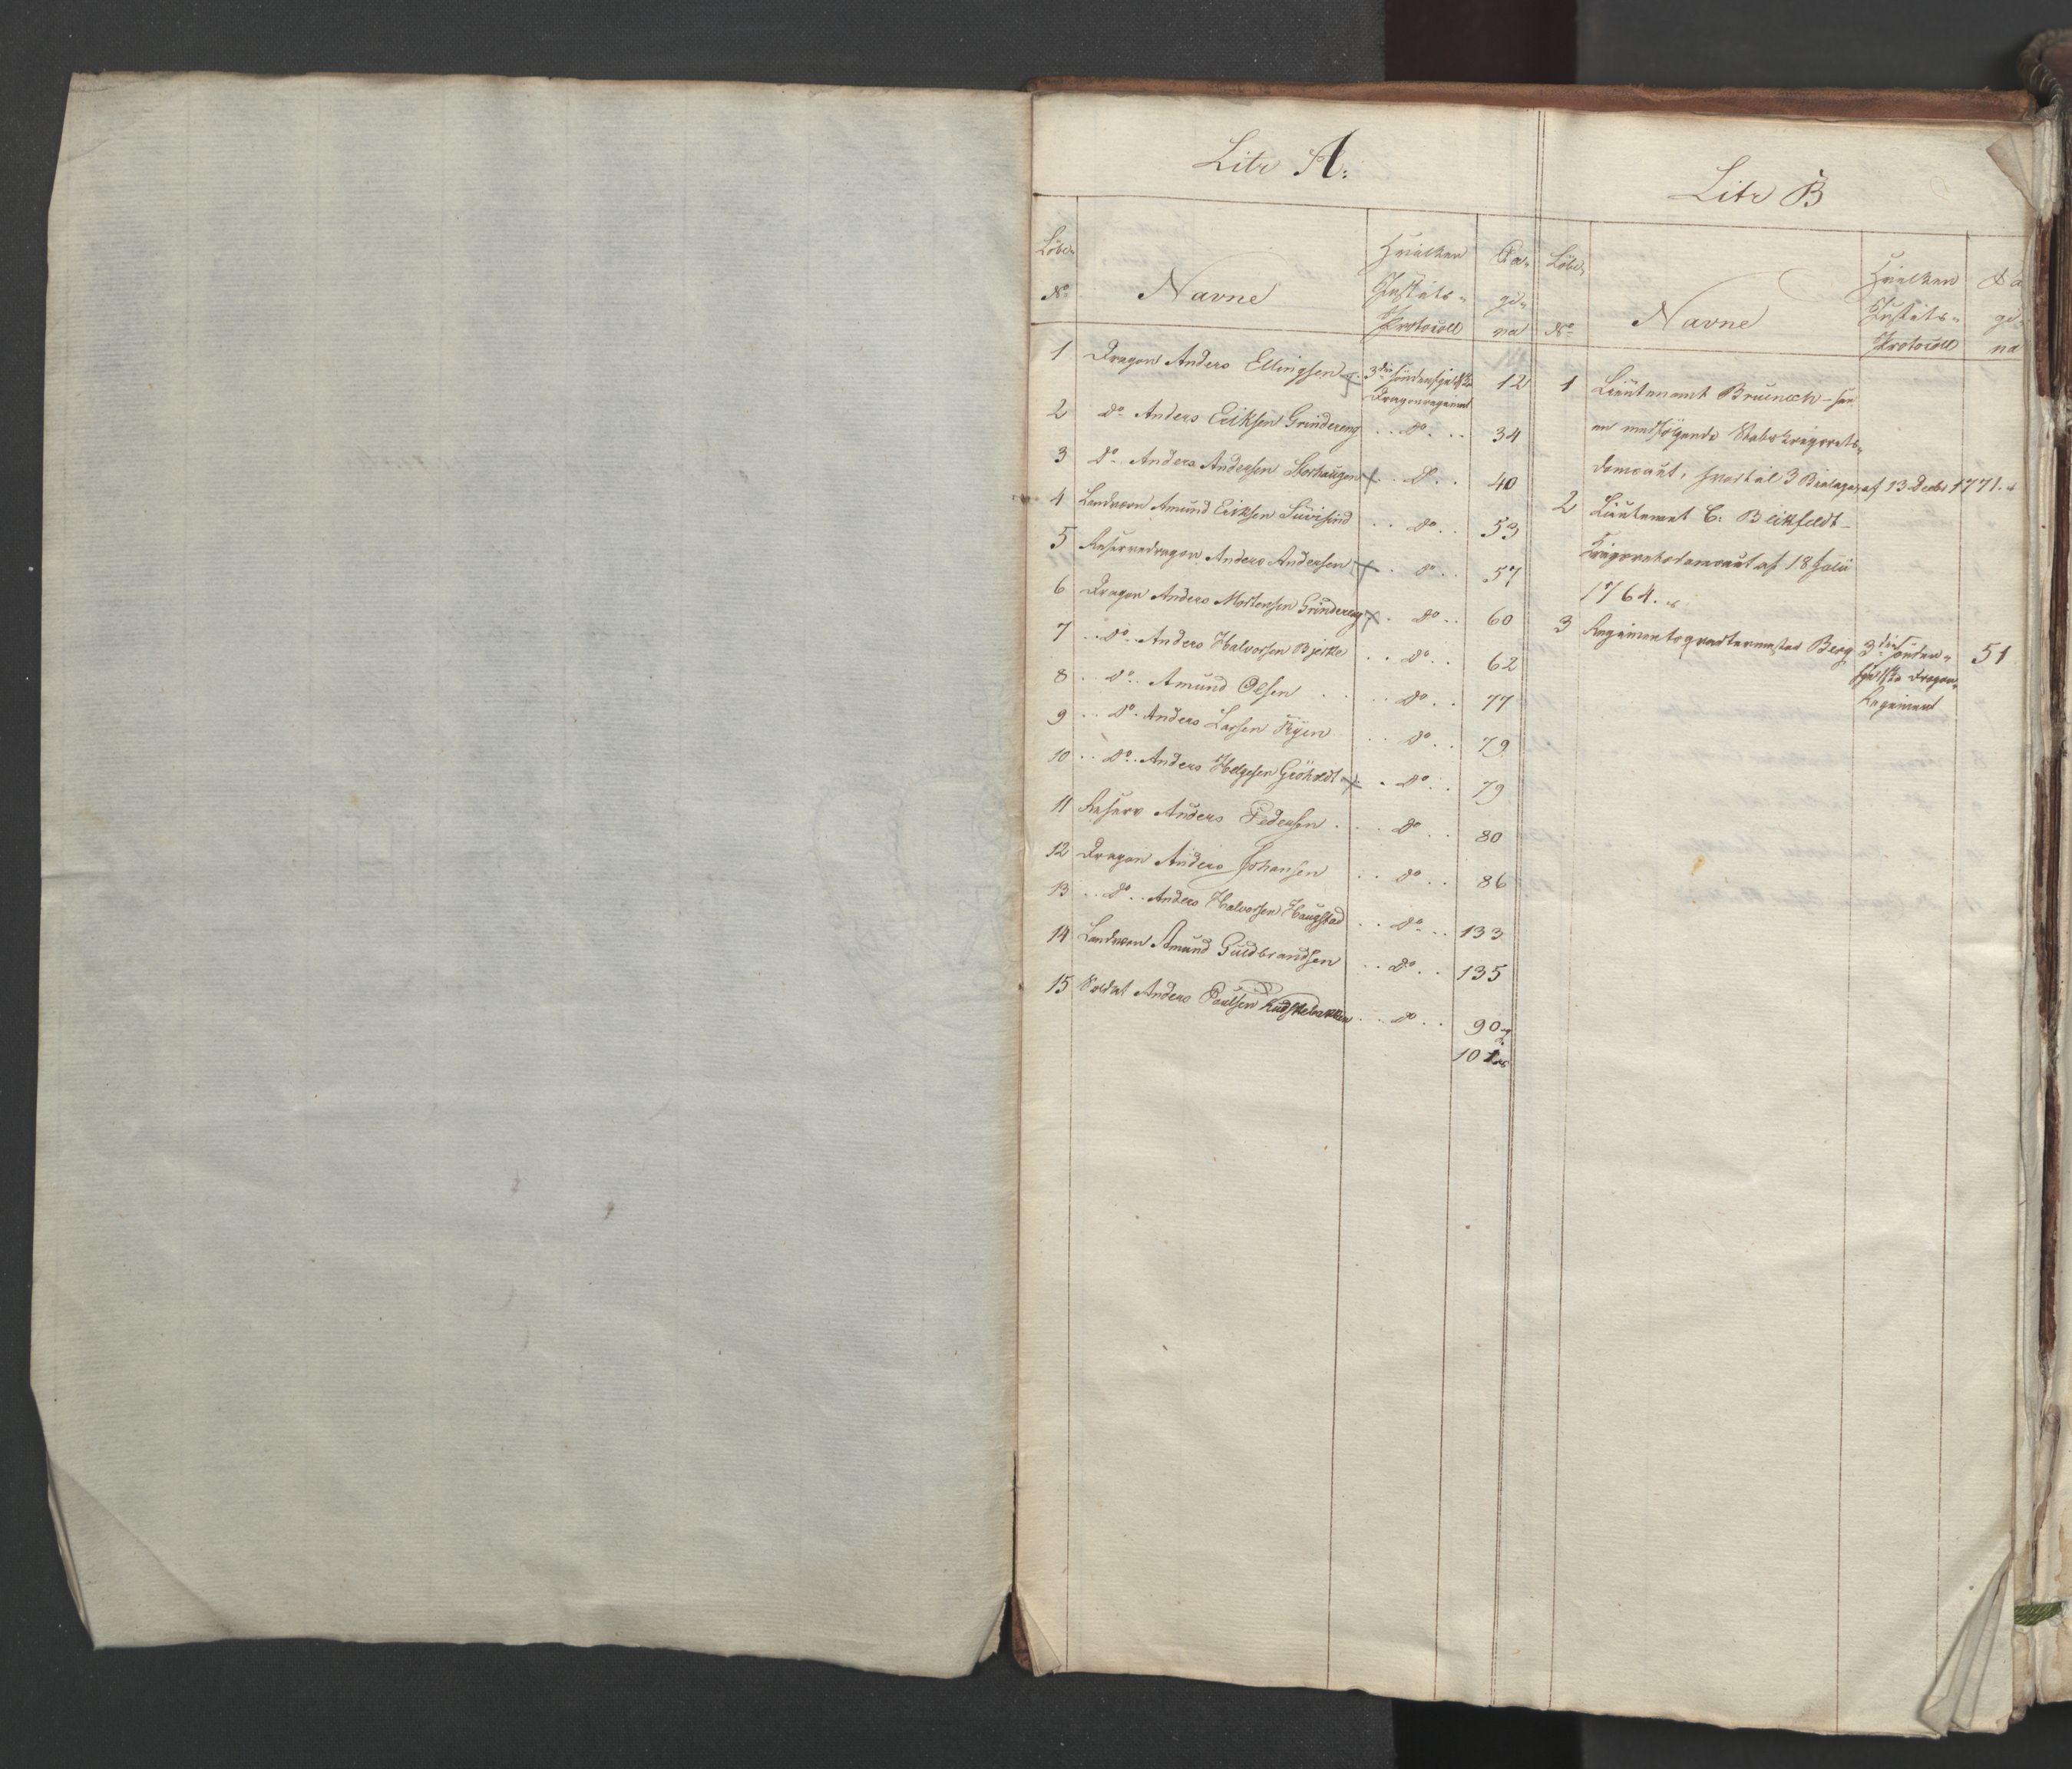 Litr A:
Löbe-
No
Navne
Hvilken
Justits-
Protocoll
Pa-
gi-
na
1 Dragon Anders Ellingsen 3die söndenfjeldske 12
Dragonregiment
2 Do Anders Eriksen Grindereng .. Do .. 34
3 Do Anders Andersen Storhaugen .. Do .. 40
4 Landværn Amund Eriksen .. Do .. 53
5 Reservedragon Anders Andersen .. Do .. 57
6 Dragon Anders Mortensen Grindereng .. Do .. 60
7 .. Do .. Anders Halvorsen Bjerke .. Do .. 62
8 .. Do .. Amund Olsen .. Do .. 77
9 .. Do . Anders Larsen Ryen .. Do .. 79
10 .. Do .. Anders Helgesen .. Do .. 79
11 Reserv Anders Pedersen .. Do .. 80
12 Dragon Anders Johansen .. Do .. 86
13 .. Do .. Anders Halvorsen Haugstad .. Do .. 133
14 Landværn Amund Guldbrandsen .. Do .. 135
15 Soldat Anders Paulsen .. Do .. 90
101
Litr B
Löbe-
No
Navne
Hvilken
Justits-
Protocoll
Pa
gi-
na
1 Lieutenant Bruenech - har
en medfølgende Stabskrigsrets-
domsact, hvortil 3 Bielager af 13 Decbr 1771.
2 Lieutenant C: Blikfeldt -
Krigsretsdomsact af 18 Julii
1764.
3 Regimentsqvartermester Berg 3die sönden- 51
fjeldske Dragon-
Regiment